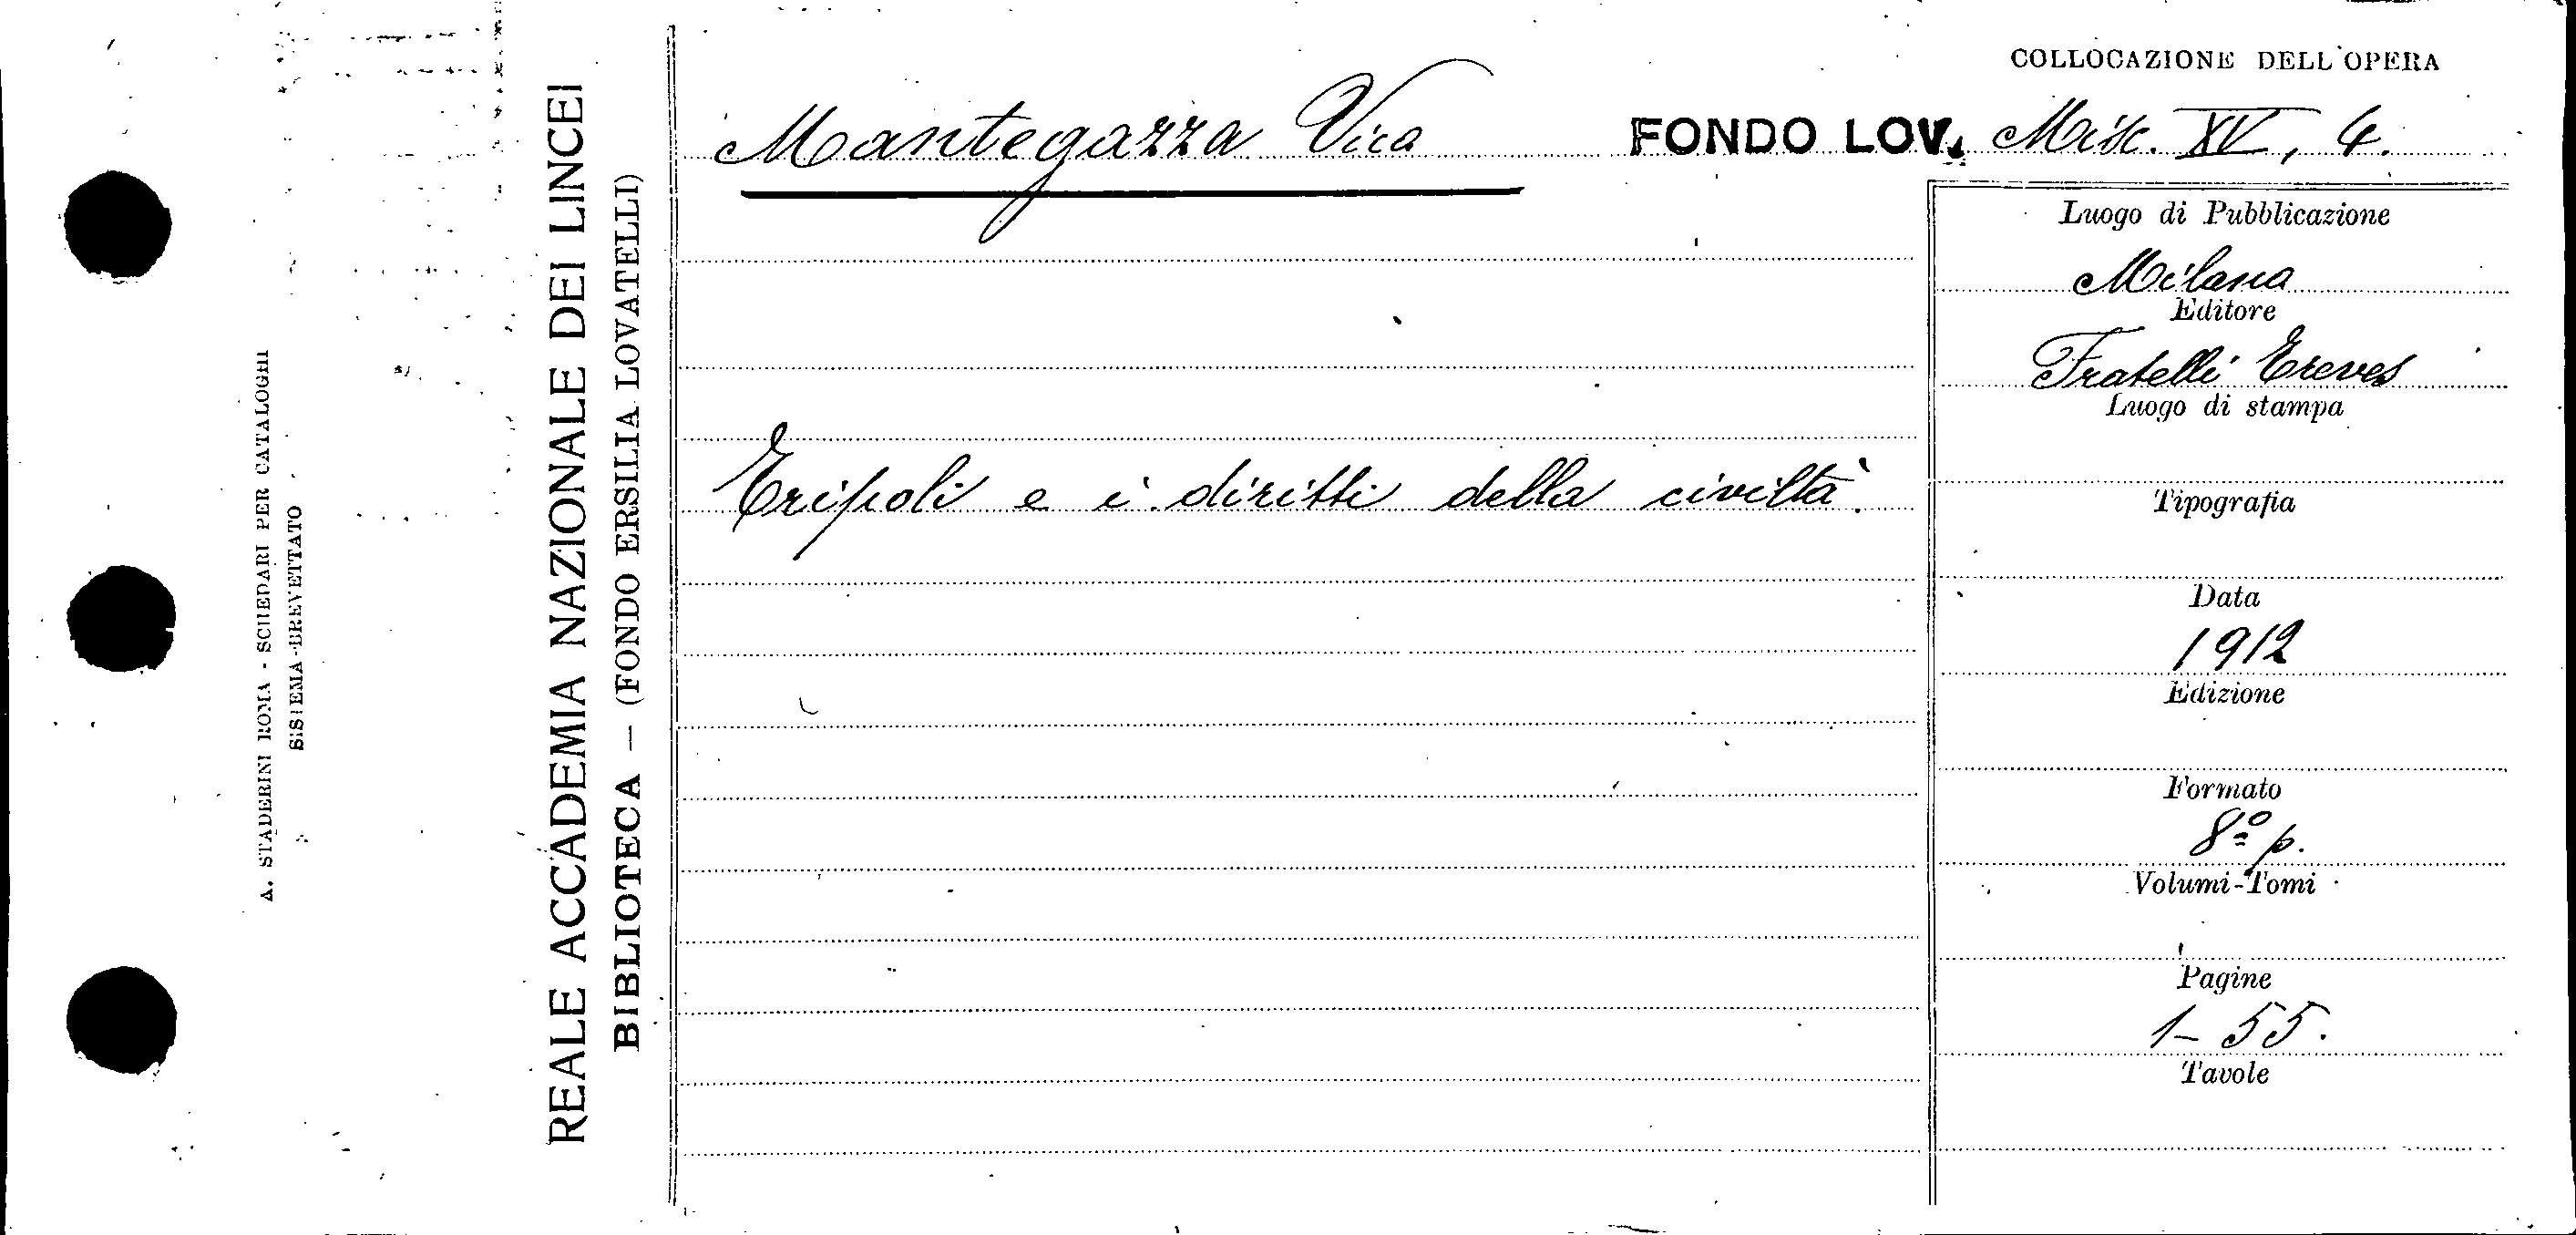 A. STADERINI ROMA - SCHEDARI PER CATALOGHI
SISTEMA BREVETTATO
REALE ACCADEMIA NAZIONALE DEI LINCEI
BIBLIOTECA — (FONDO ERSILIA LOVATELLI)
COLLOCAZIONE DELL'OPERA
Mantegazza Vico FONDO LOV. Misc. XV, 4.
Luogo di Pubblicazione
Milano
Editore
Fratelli Treves
Luogo di stampa
Tripoli e i diritti della civiltà.
Tipografia
Data
1912
Edizione
Formato
8º p.
Volumi-Tomi
Pagine
1-55.
Tavole